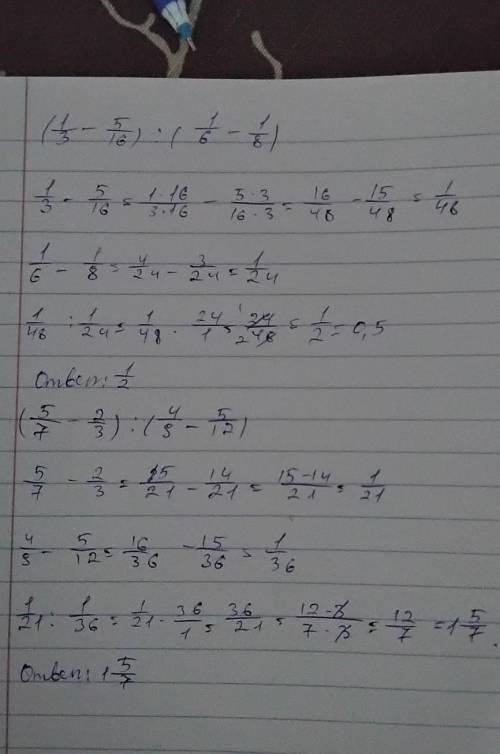 (1/3 - 5/16) : (1/6 - 1/8)
1/3 - 5/16 = 1·16/3·16 - 5·3/16·3 = 16/48 - 15/48 = 1/48
1/6 - 1/8 = 4/24 - 3/24 = 1/24
1/48 : 1/24 = 1/48 · 24/1 = 1 24/2 48 = 1/2 = 0,5
Ответ: 1/2
(5/7 - 2/3) : (4/9 - 5/12)
5/7 - 2/3 = 15/21 - 14/21 = 15-14/21 = 1/21
4/9 - 5/12 = 16/36 - 15/36 = 1/36
1/21 : 1/36 = 1/21 · 36/1 = 36/21 = 12·3/7·3 = 12/7 = 1 5/7.
Ответ: 1 5/7